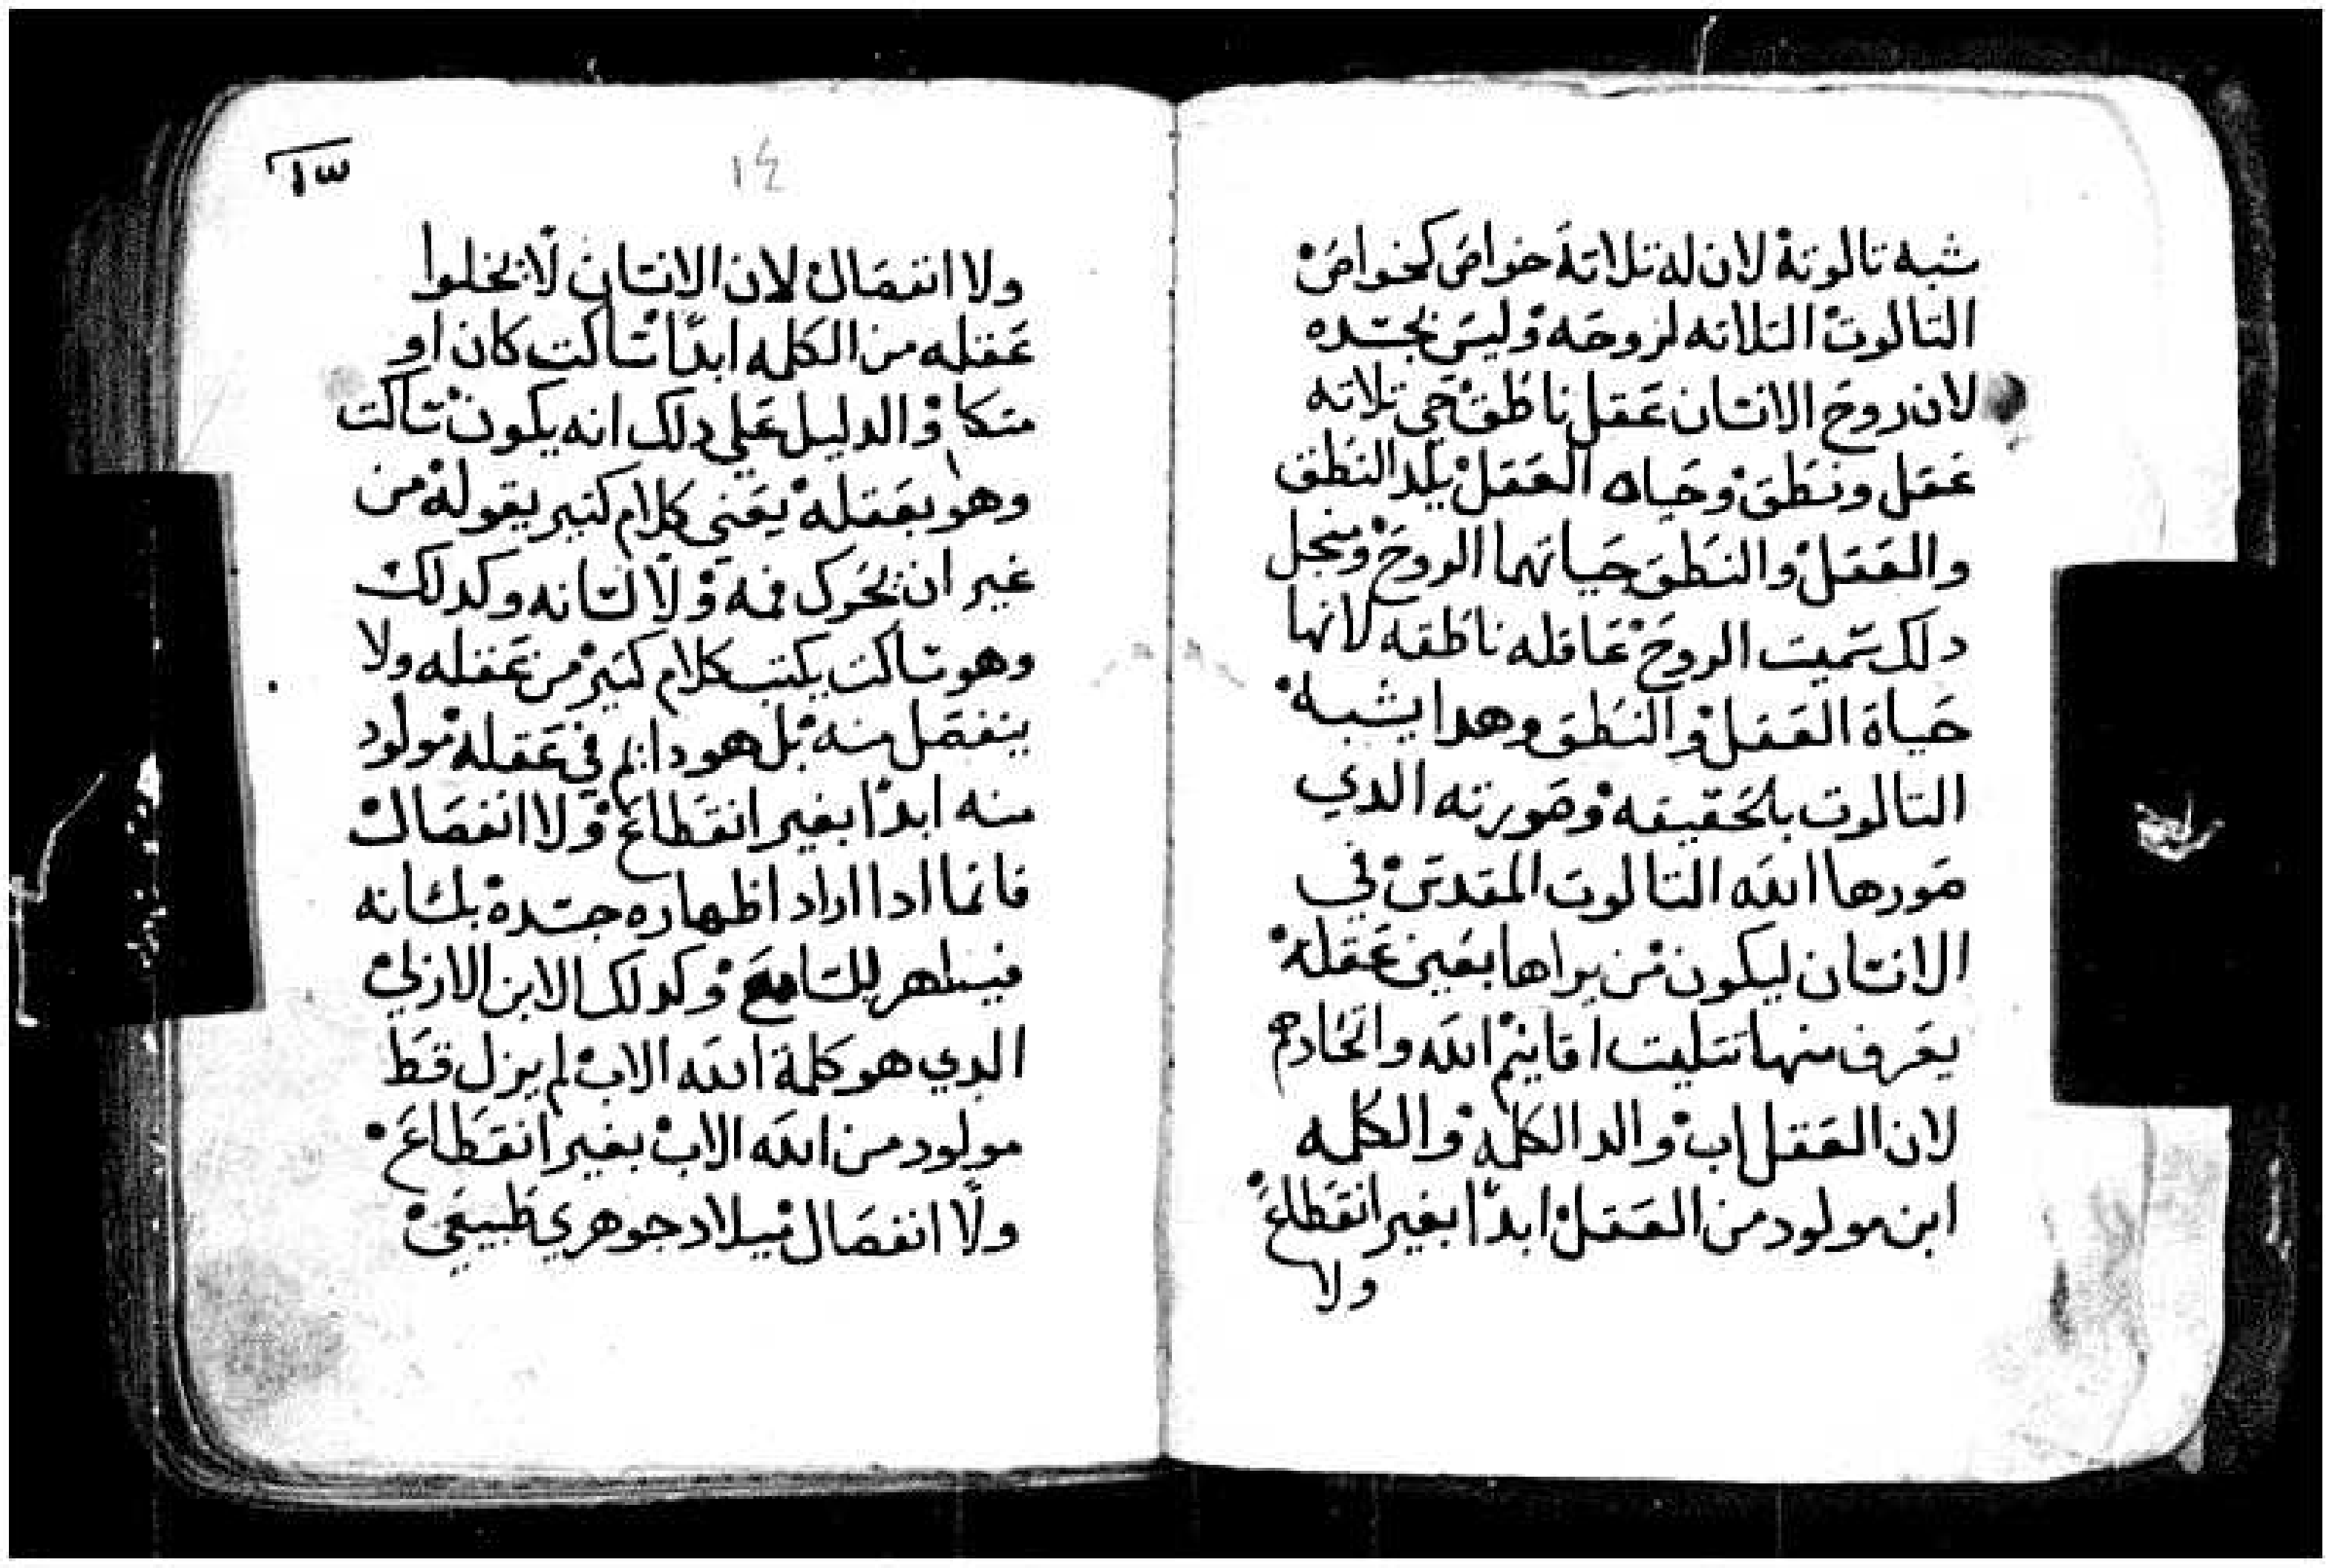 شبه تالوته لان له تلاتة خواص كخواص
التالوت التلاته لروحه وليس بجسده
لان روح الانسان عقل ناطق حي تلاته
عقل ونطق وحياه العقل يلد النطق
والعقل والنطق حياتهما الروح ومنجل
دلك سميت الروح عاقله ناطقه لانها
حياة العقل والنطق وهدا يشبه
التالوت بالحقيقه وصورته الدي
صورها الله التالوت المقدس في
الانسان ليكون من يراها بعين عقله
يعرف منها تتليت اقانيم الله واتحادهم
لان العقل اب والد الكلمه والكلمه
ابن مولود من العقل ابدا بغير انقطاع
ولا
١٣
١٤
ولا انفصال لان الانسان لا يخلوا
عقله من الكلمه ابدا ساكت كان او
متكا والدليل علي دلك انه يكون ساكت
وهو بعقله يعني كلام كتير يقوله من
غير ان يحرك فمه ولا لسانه وكدلك
وهو ساكت يكتب كلام كتير من عقله ولا
ينفصل منه بل هو دايم في عقله مولود
منه ابدا بغير انقطاع ولا انفصال
فانما ادا اراد اظهاره جسده بلسانه
فيظهر للسامع وكدلك الابن الازلي
الدي هو كلمة الله الاب لم يزل قط
مولود من الله الاب بغير انقطاع
ولا انفصال ميلاد جوهري طبيعي